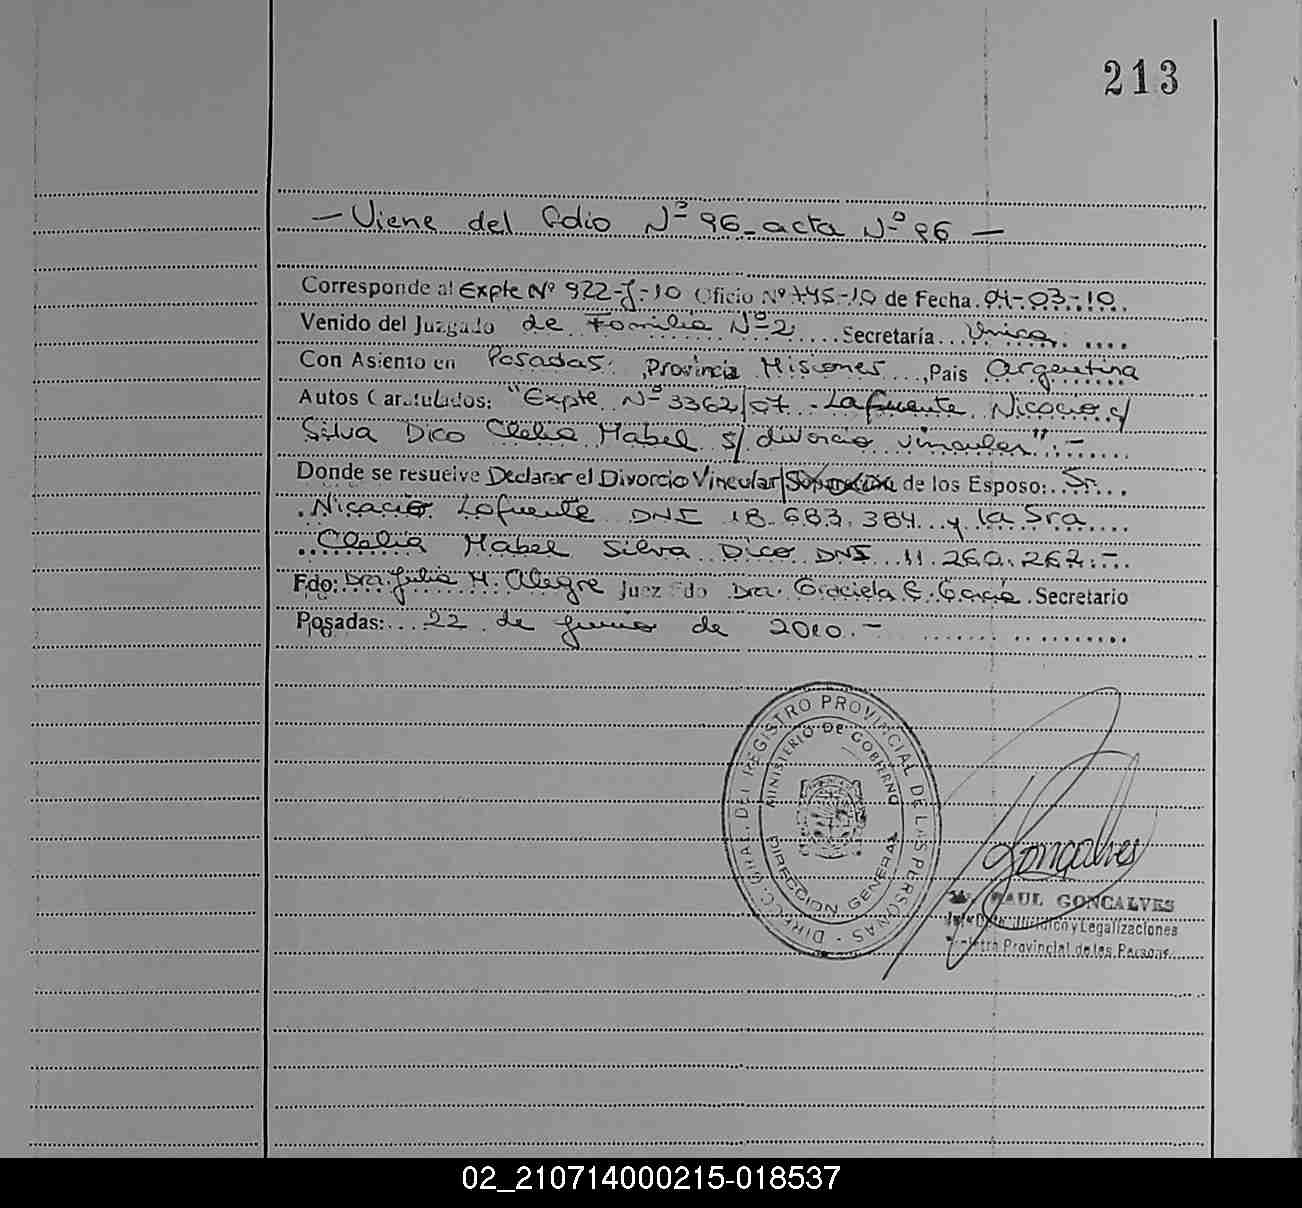 213
— Viene del folio Nº 96 - acta Nº 96 —
Corresponde al Expte Nº 922-J-10 Oficio Nº 745-10 de Fecha 04-03-10.
Venido del Juzgado de Familia Nº 2 Secretaría Unica
Con Asiento en Posadas, Provincia Misiones, Pais Argentina
Autos Caratulados: "Expte Nº 3362/07 - Lafuente Nicacio c/
Silva Dico Clelia Mabel s/ divorcio vincular".-
Donde se resuelve Declarar el Divorcio Vincular/ de los Esposo: Sr.
Nicacio Lafuente DNI 18.683.384 y la Sra
Clelia Mabel Silva Dico DNI 11.260.262.-
Fdo: Dra. Julia M. Alegre Juez Fdo Dra. Graciela G. García Secretario
Posadas: 22 de junio de 2010.-
DIRECC. GRAL. DEL REGISTRO PROVINCIAL DE LAS PERSONAS -
MINISTERIO DE GOBIERNO
DIRECCION GENERAL
Gonçalves
RAUL GONCALVES
Jurídico y Legalizaciones
Registro Provincial de las Person.
02_210714000215-018537